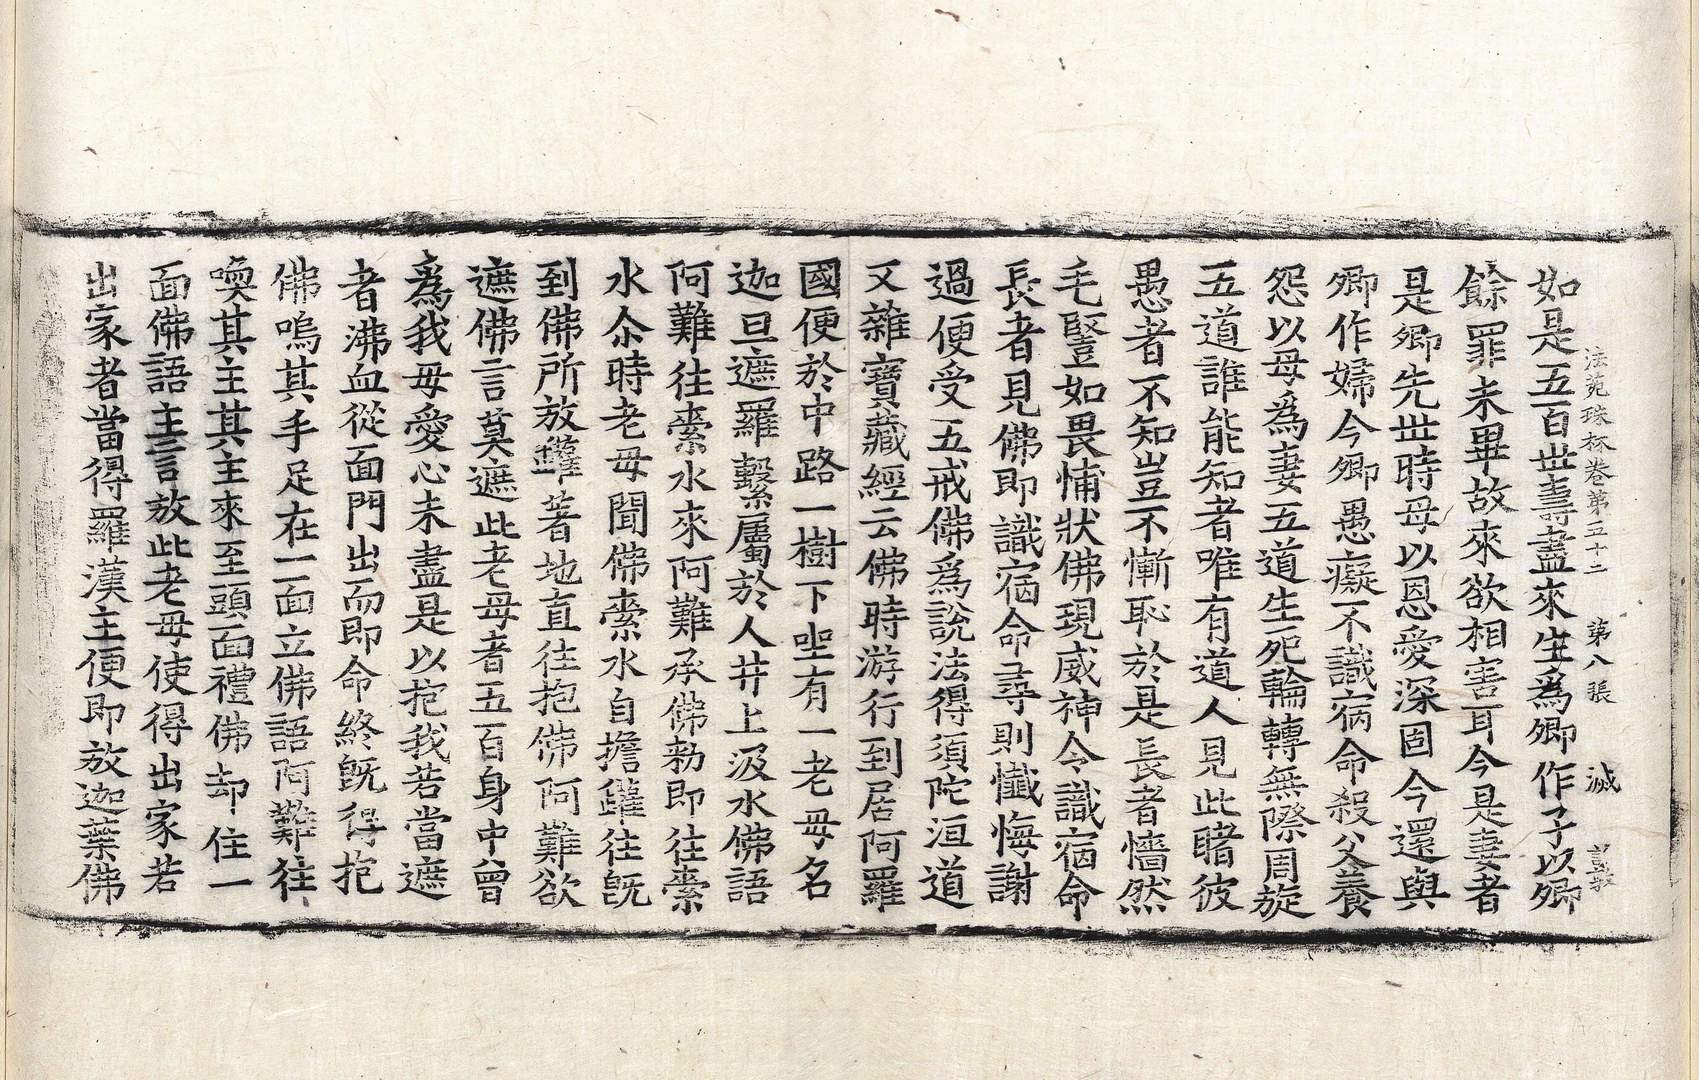 法苑珠林卷第五十二 第八張 滅
如是五百世壽盡來生為卿作子以卿
餘罪未畢故來欲相害耳今是妻者
是卿先世時母以恩愛深固今還與
卿作婦今卿愚癡不識宿命殺父養
怨以母為妻五道生死輪轉無際周旋
五道誰能知者唯有道人見此睹彼
愚者不知豈不慚恥於是長者懎然
毛豎如畏怖狀佛現威神令識宿命
長者見佛即識宿命尋則懺悔謝
過便受五戒佛為說法得須陀洹道
又雜寶藏經云佛時游行到居阿羅
國便於中路一樹下坐有一老母名
迦旦遮羅繫屬於人井上汲水佛語
阿難往索水來阿難承佛勑即往索
水尒時老母聞佛索水自擔鑵往既
到佛所放鑵著地直往抱佛阿難欲
遮佛言莫遮此老母者五百身中曾
為我母愛心未盡是以抱我若當遮
者沸血從面門出而即命終既得抱
佛嗚其手足在一面立佛語阿難往
喚其主其主來至頭面禮佛却住一
面佛語主言放此老母使得出家若
出家者當得羅漢主便即放迦葉佛